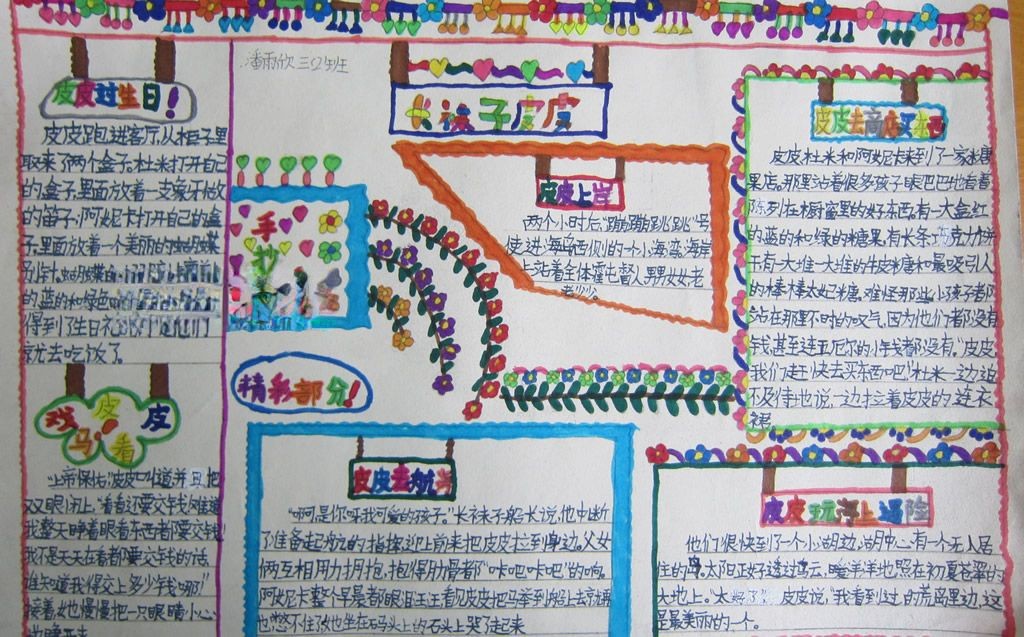 潘雨欣 三(2)班
长袜子皮皮
皮皮过生日!
皮皮跑进客厅,从柜子里
取来了两个盒子。杜米打开自己
的盒子,里面放着一支象牙做
的笛子,阿妮卡打开自己的盒
子,里面放着一个美丽的蝴蝶
别针。蝴蝶的
的蓝的和绿色
得到了生日礼
就去吃饭了。
手抄
精彩部分!
皮皮上岸
两个小时后,“蹦蹦蹦跳跳”号
使进海马西侧的一个小海湾。海岸
上站着全体霍屯督人,男男女女,老
老少少。
皮皮去商店买东西
皮皮、杜米和阿妮卡来到了一家糖
果店。那里站着很多孩子,眼巴巴地看着
陈列在橱窗里的好东西,有一大盒红
的、蓝的和绿的糖果,有长条巧克力饼
干,有一大堆一大堆的牛皮糖和最吸引人
的棒棒太妃糖。难怪那些小孩子都
站在那里不时的叹气,因为他们都没有
钱,甚至连五尼尔的小钱都没有。“皮皮,
我们赶快去买东西吧!”杜米一边迫
不及待地说,一边拉着皮皮的连衣
裙。
戏皮皮
马!看
“上帝保佑,”皮皮叫道,并且把
双眼闭上,“看看还要交钱,难道
我整天睁着眼看东西都要交钱!
我们是天天在看都要交钱的话,
谁知道我得交上多少钱哪!”
接着,她慢慢把一只眼睛小心
皮皮去航海
“啊,是你呀,我可爱的孩子。”长袜子船长说,他中断
了准备起航的指挥,迎上前来把皮皮拉到身边。父女
俩互相用力拥抱,抱得肋骨都“咔吧咔吧”的响。
阿妮卡整个早晨都眼泪汪汪,看见皮皮把马举到船上去
也憋不住了,她坐在码头上的石头上哭了起来
皮皮玩海上遇险
他们很快到了一个小湖边,湖中心有一个无人居
住的岛,太阳正好透过乌云,暖洋洋地照在初夏苍翠的
大地上。“太好了!”皮皮说,“我看到过的荒岛里边,这
是最美丽的一个。